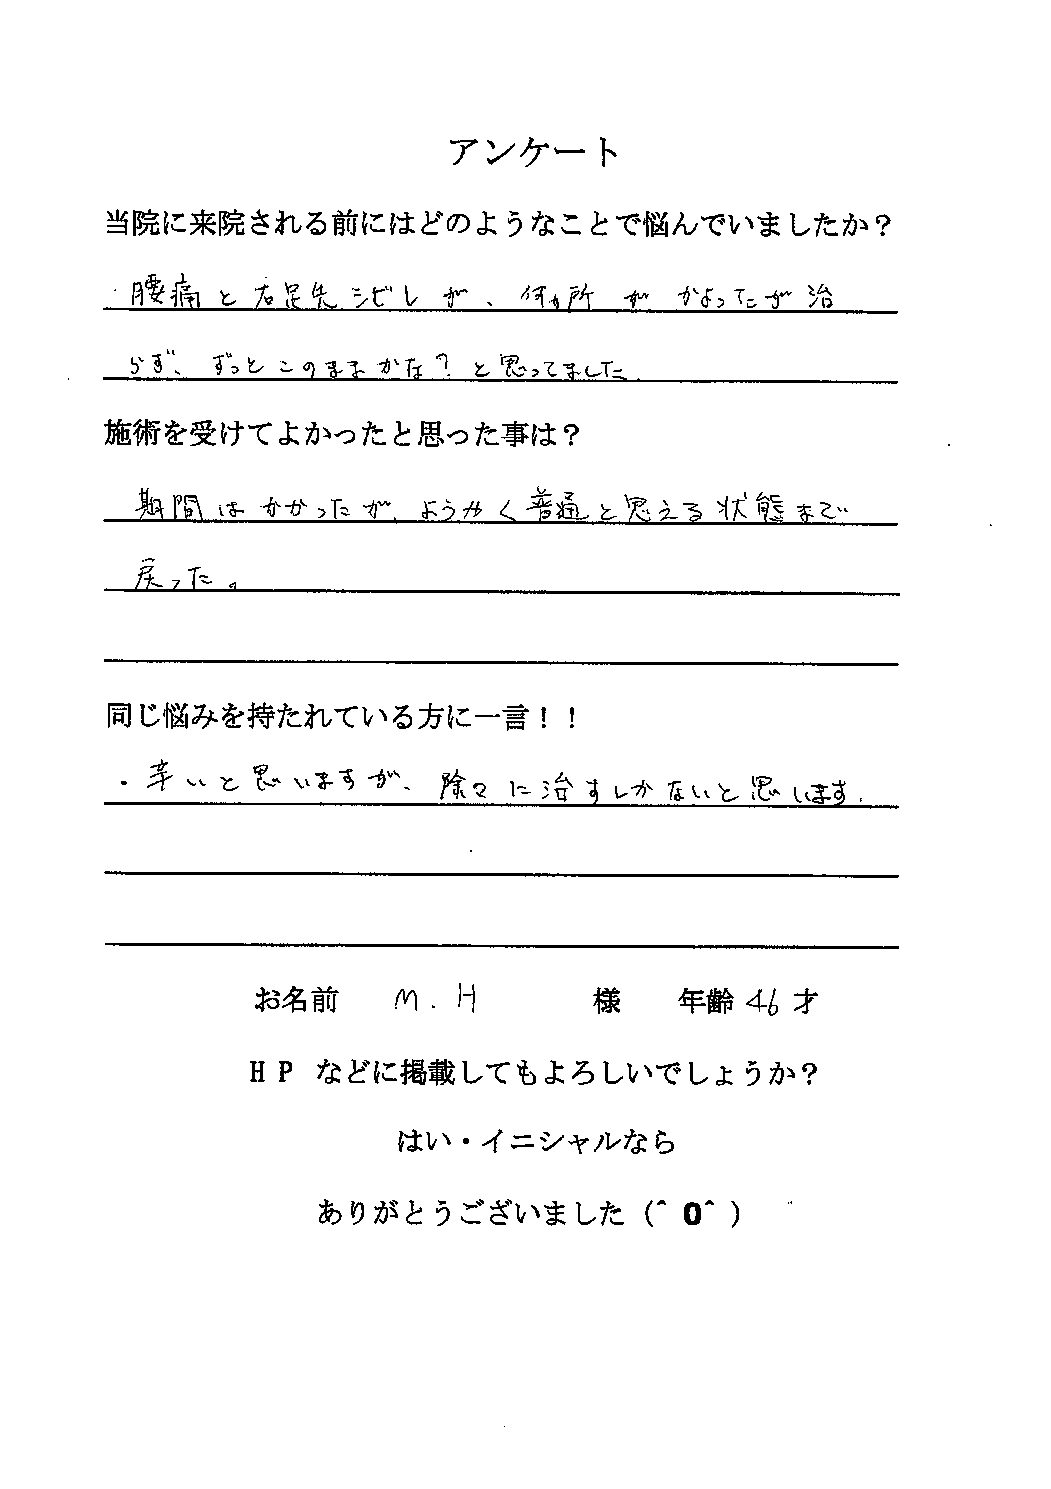 アンケート
当院に来院される前にはどのようなことで悩んでいましたか？
・腰痛と右足先シビレが、何ヵ所がかよってたが治
らず、ずっとこのままかな？と思ってました.
施術を受けてよかったと思った事は？
期間はかかったが、ようやく普通と思える状態まで
戻った。
同じ悩みを持たれている方に一言！！
・辛いと思いますが、除々に治すしかないと思います.
お名前 M.H 様 年齢 46 才
ＨＰ などに掲載してもよろしいでしょうか？
はい・イニシャルなら
ありがとうございました（＾０＾）